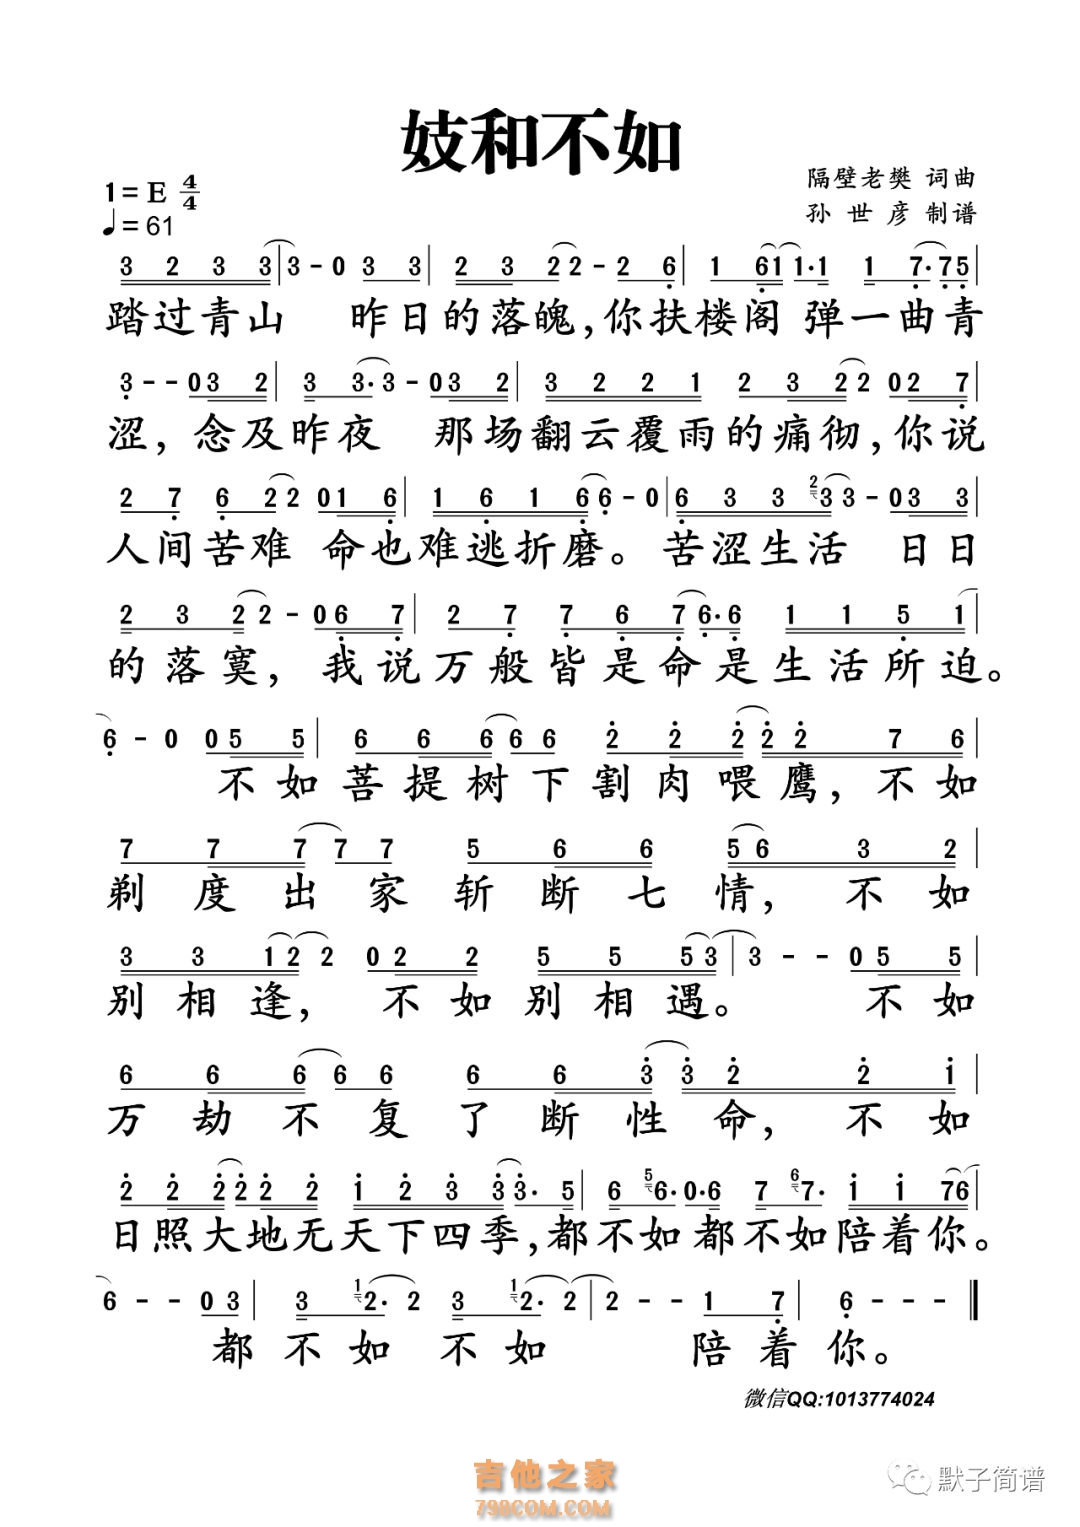 妓和不如
隔壁老樊 词曲
1=E 4/4
孙 世 彦 制谱
♩=61
3 2 3 3 | 3 - 0 3 3 | 2 3 2 2 - 2 6 | 1 6 1 1·1 1 7·7 5
踏过青山 昨日的落魄,你扶楼阁 弹一曲青
3 - - 0 3 2 | 3 3·3 - 0 3 2 | 3 2 2 1 2 3 2 2 0 2 7
涩, 念及昨夜 那场翻云覆雨的痛彻,你说
2 7 6 2 2 0 1 6 | 1 6 1 6 6 - 0 | 6 3 3 2 3 3 - 0 3 3
人间苦难 命也难逃折磨。苦涩生活 日日
2 3 2 2 - 0 6 7 | 2 7 7 6 7 6·6 1 1 5 1 |
的落寞, 我说万般皆是命是生活所迫。
6 - 0 0 5 5 | 6 6 6 6 6 2 2 2 2 2 7 6 |
不如菩提树下割肉喂鹰, 不如
7 7 7 7 7 5 6 6 5 6 3 2 |
剃度出家斩断七情, 不如
3 3 1 2 2 0 2 2 5 5 5 3 | 3 - - 0 5 5 |
别相逢, 不如别相遇。 不如
6 6 6 6 6 6 6 3 3 2 2 1 |
万劫不复了断性命, 不如
2 2 2 2 2 2 1 2 3 3 3· 5 | 6 5 6·0·6 7 6 7· 1 1 7 6
日照大地无天下四季,都不如都不如陪着你。
6 - - 0 3 | 3 1 2· 2 3 1 2· 2 | 2 - - 1 7 | 6 - - - ‖
都不如不如 陪着你。
微信QQ:1013774024
吉他之家
798COM.COM
默子简谱